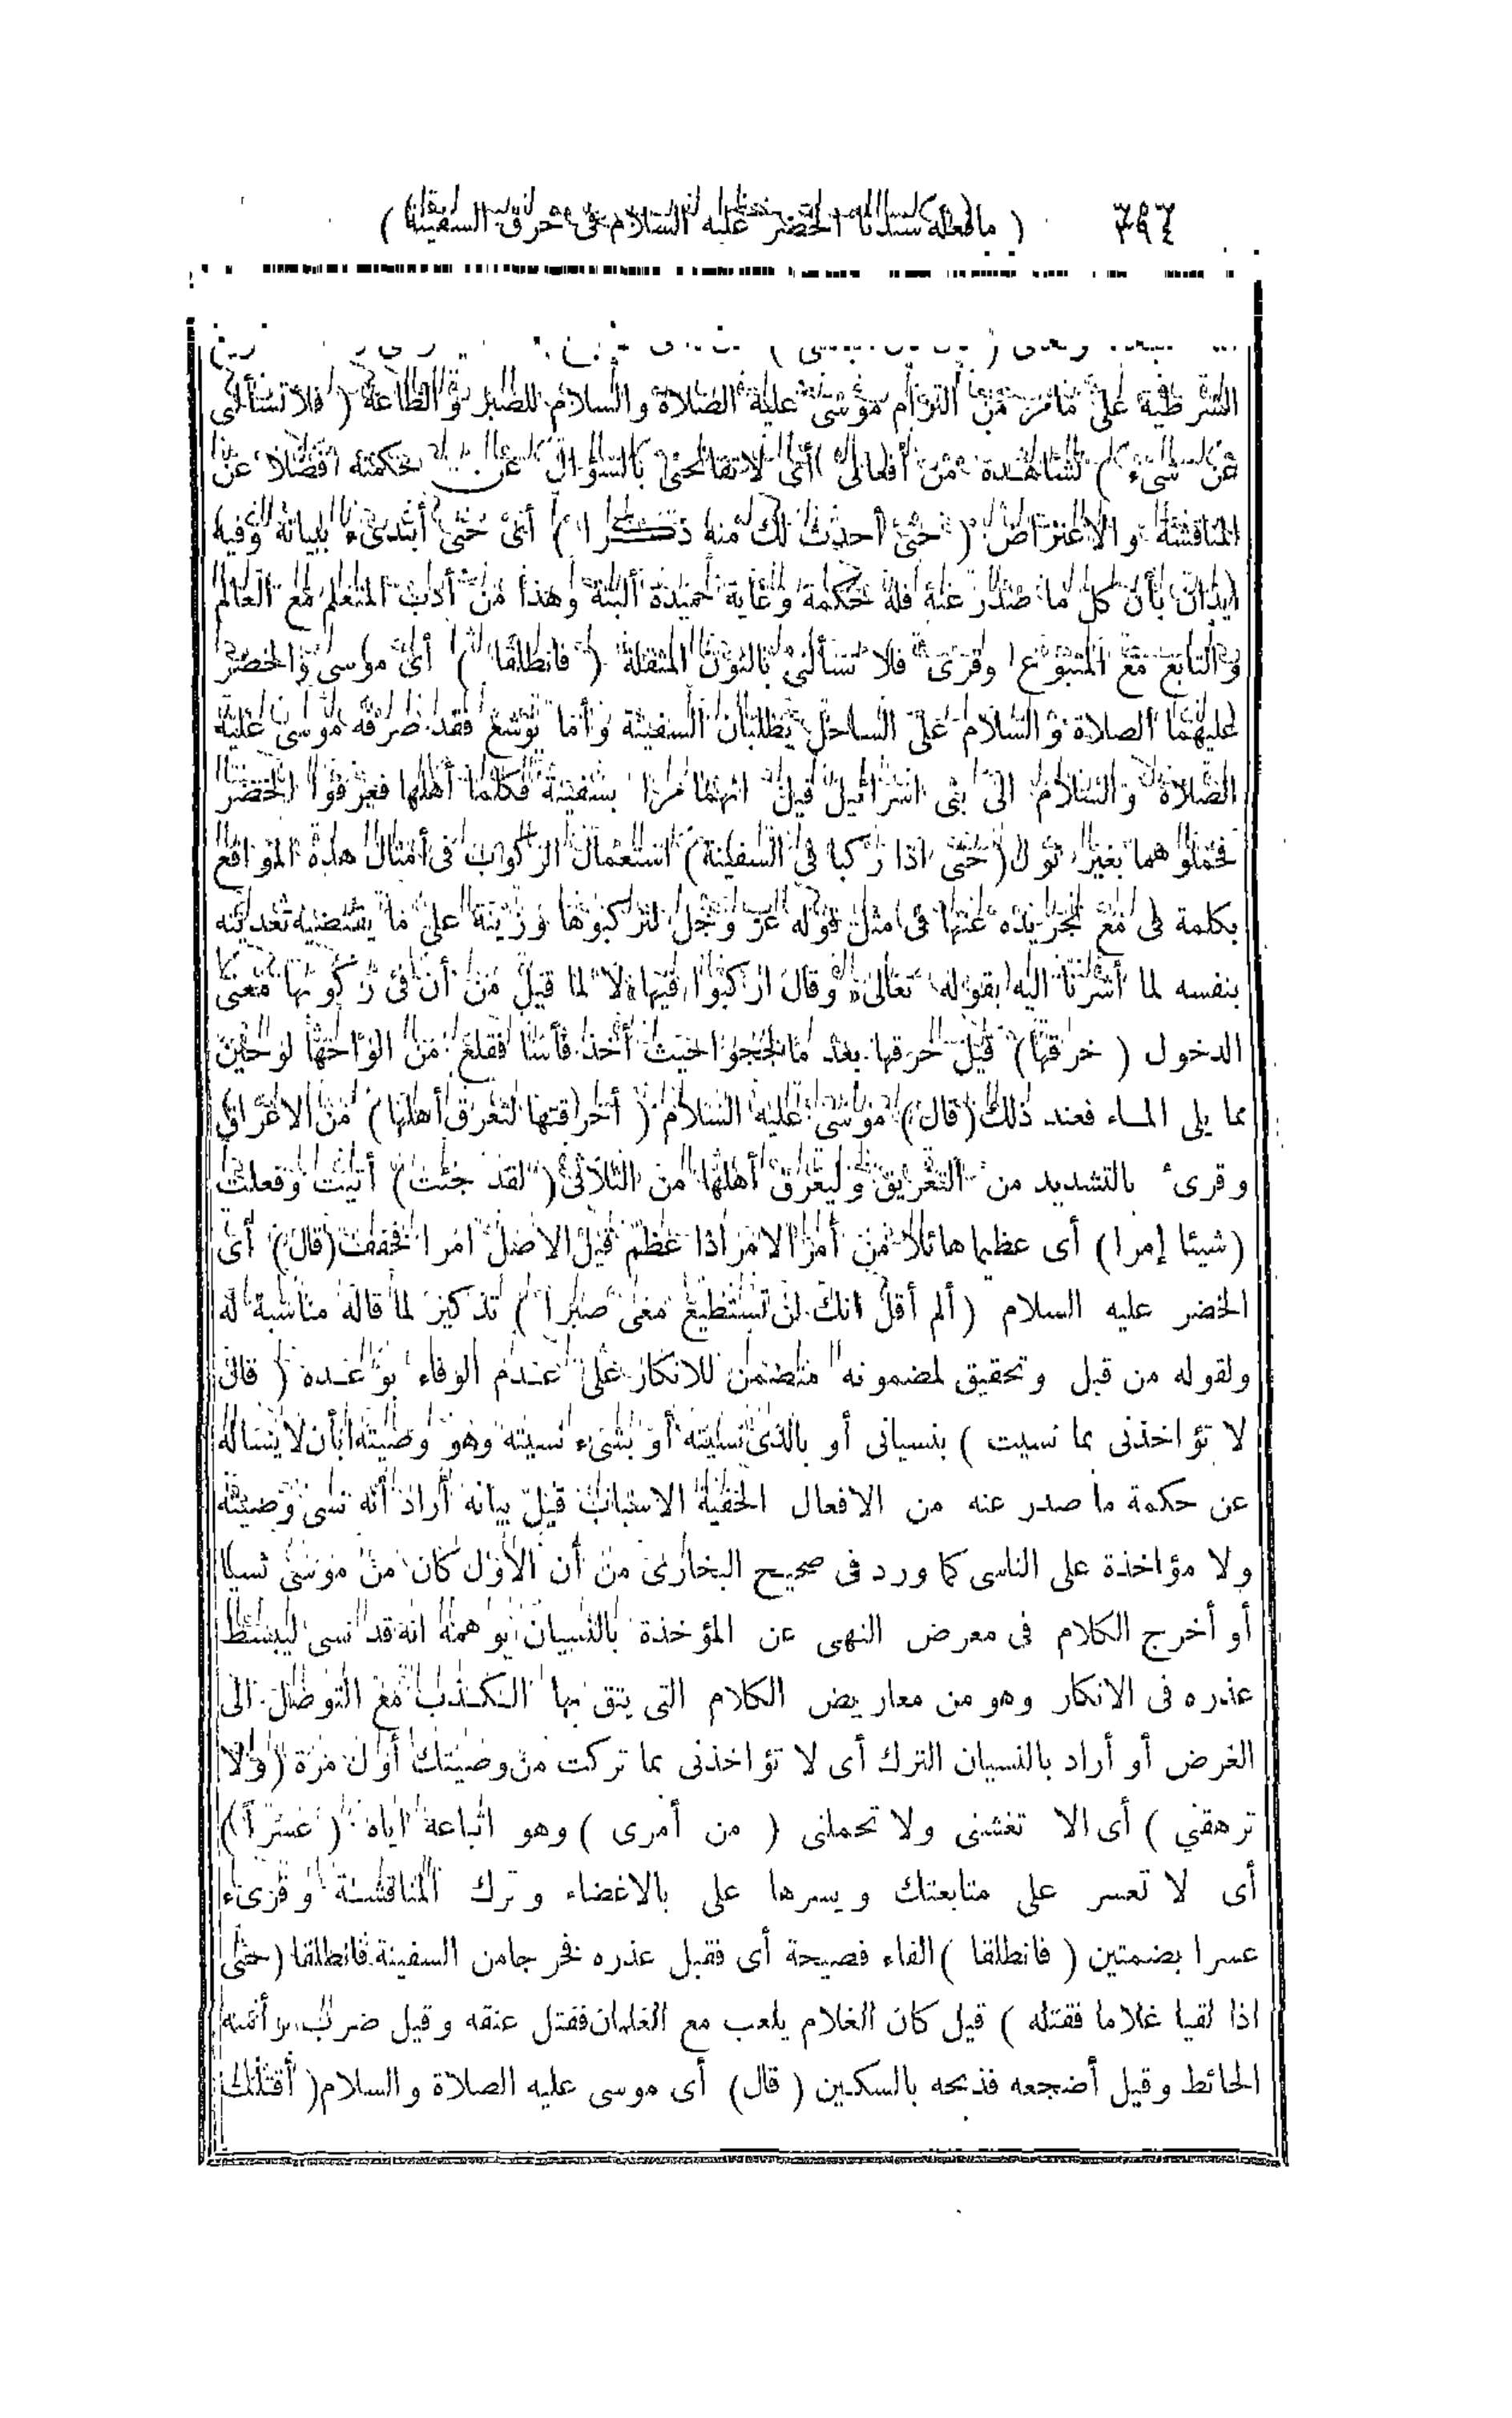 ٣٩٤ ( ما فعله سيدنا الخضر عليه السلام فى خرق السفينة )
الشرطية على ما مر من التزام موسى عليه الصلاة والسلام للصبر والطاعة ( فلا تسألنى
عن شىء ) تشاهده من أفعالى أى لا تفاتحنى بالسؤال عن حكمته فضلا عن
المناقشة والاعتراض ( حتى أحدث لك منه ذكرا ) أى حتى أبتدىء ببيانه وفيه
ايذان بأن كل ما صدر عنه فله حكمة وغاية حميدة ألبتة وهذا من أدب المتعلم مع العالم
والتابع مع المتبوع وقرىء فلا تسألنى بالنون المثقلة ( فانطلقا ) أى موسى والخضر
عليهما الصلاة والسلام على الساحل يطلبان السفينة وأما يوشع فقد صرفه موسى عليه
الصلاة والسلام الى بنى اسرائيل قيل انهما مرا بسفينة فكلما أهلها فعرفوا الخضر
فحملوهما بغير نول ( حتى اذا ركبا فى السفينة ) استعمال الركوب فى أمثال هذه المواقع
بكلمة فى مع تجريده عنها فى مثل قوله عز وجل لتركبوها وزينة على ما يقتضيه تعديته
بنفسه لما أشرنا اليه بقوله تعالى وقال اركبوا فيها لا لما قيل من أن فى ركوبها معنى
الدخول ( خرقها ) قيل خرقها بعد ما لججوا حيث أخذ فأسا فقلع من ألواحها لوحين
مما يلى الماء فعند ذلك ( قال ) موسى عليه السلام ( أخرقتها لتغرق أهلها ) من الاغراق
وقرىء بالتشديد من التغريق وليغرق أهلها من الثلاثى ( لقد جئت ) أتيت وفعلت
( شيئا إمرا ) أى عظيما هائلا من أمر الامر اذا عظم قيل الاصل امرا فخفف ( قال ) أى
الخضر عليه السلام ( ألم أقل انك لن تستطيع معى صبرا ) تذكير لما قاله مناسبة له
ولقوله من قبل وتحقيق لمضمونه متضمن للانكار على عدم الوفاء بوعده ( قال
لا تؤاخذنى بما نسيت ) بنسيانى أو بالذى نسيته أو بشىء نسيته وهو وصيته بأن لا يسأله
عن حكمة ما صدر عنه من الافعال الخفية الاسباب قبل بيانه أراد أنه نسى وصيته
ولا مؤاخذة على الناسى كما ورد فى صحيح البخارى من أن الأول كان من موسى نسيانا
أو أخرج الكلام فى معرض النهى عن المؤخذة بالنسيان يوهمه انه قد نسى ليبسط
عذره فى الانكار وهو من معاريض الكلام التى يتق بها الكذب مع التوصل الى
الغرض أو أراد بالنسيان الترك أى لا تؤاخذنى بما تركت من وصيتك أول مرة ( ولا
ترهقنى ) أى الا تغشنى ولا تحملنى ( من أمرى ) وهو اتباعه اياه ( عسرا )
أى لا تعسر على متابعتك ويسرها على بالاغضاء وترك المناقشة وقرىء
عسرا بضمتين ( فانطلقا ) الفاء فصيحة أى فقبل عذره فخرجا من السفينة فانطلقا ( حتى
اذا لقيا غلاما فقتله ) قيل كان الغلام يلعب مع الغلمان ففتل عنقه وقيل ضرب برأسه
الحائط وقيل أضجعه فذبحه بالسكين ( قال ) أى موسى عليه الصلاة والسلام ( أقتلت